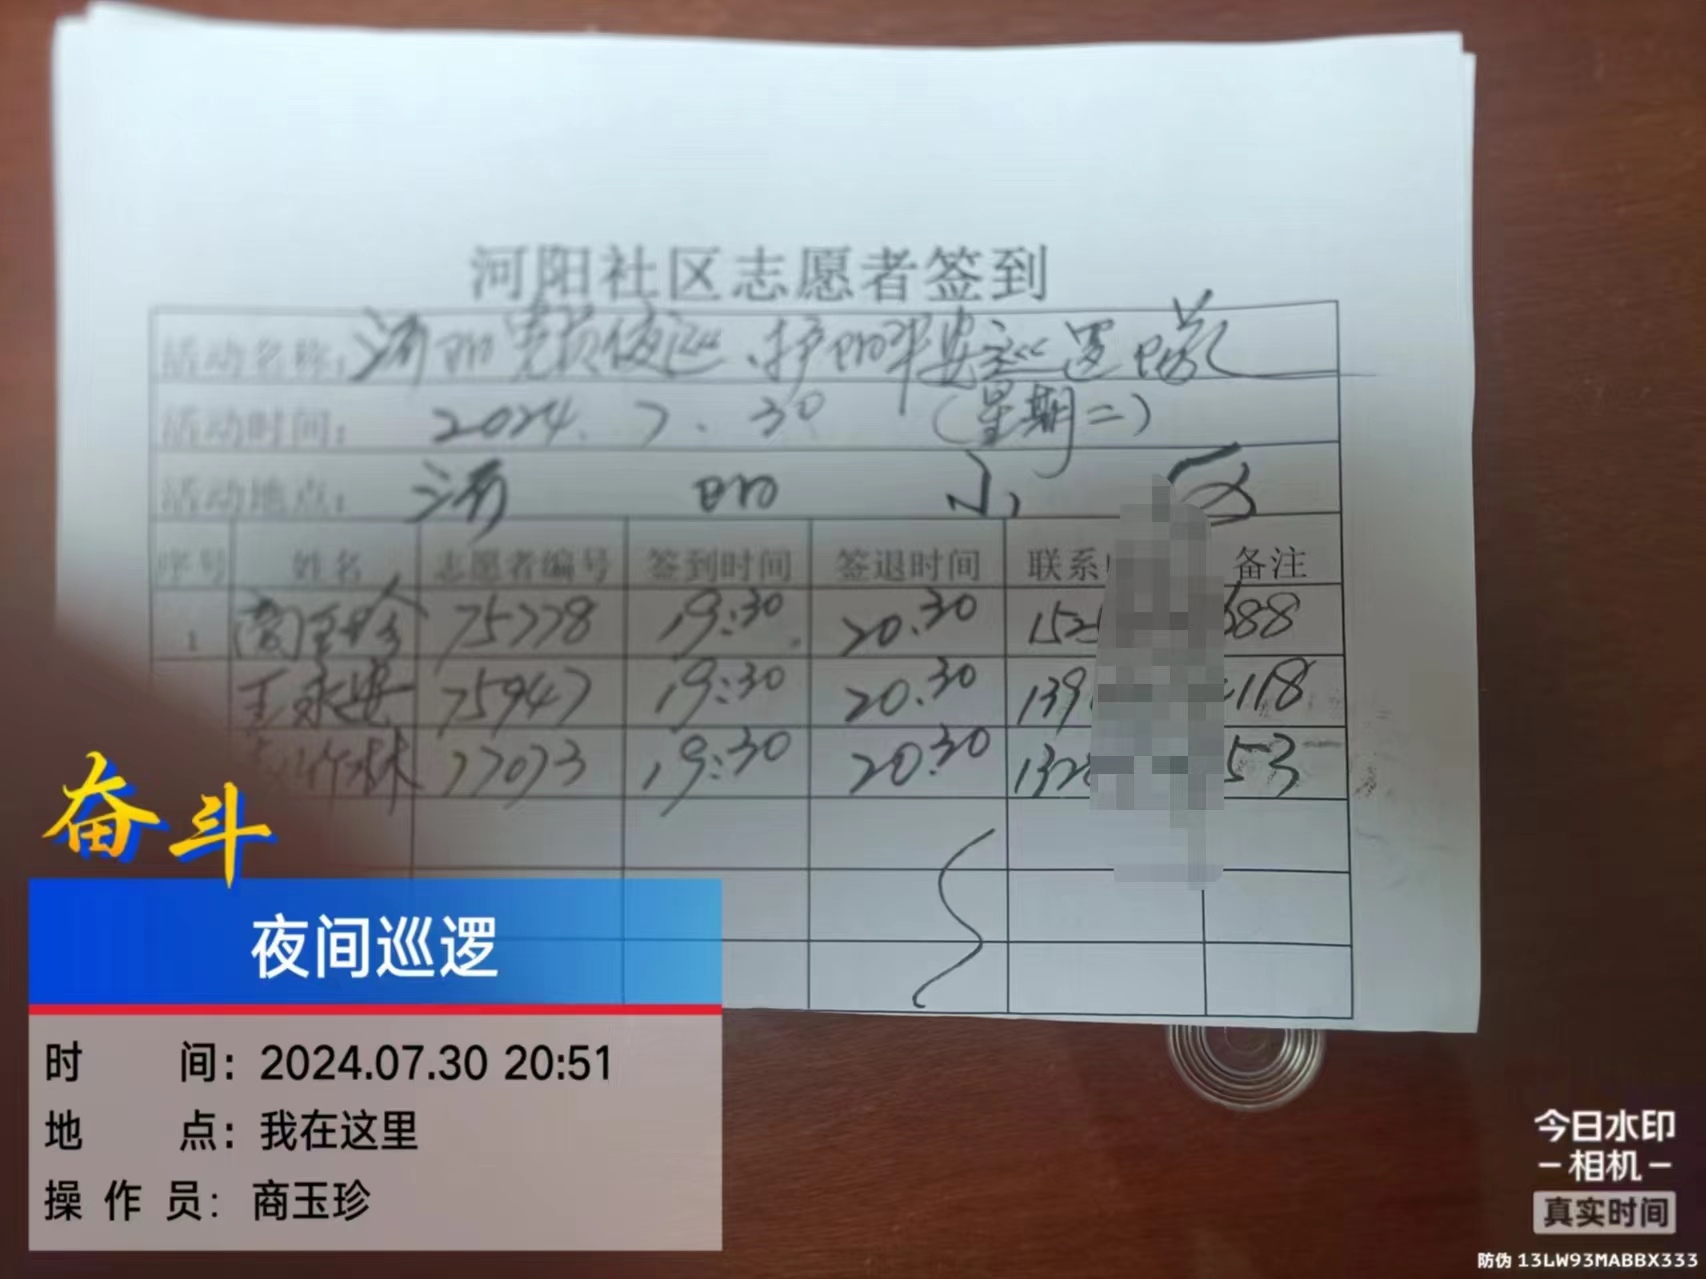 河阳社区志愿者签到
活动名称：河阳党员夜巡、护阳平安巡逻队
活动时间：2024.7.30（星期二）
活动地点：河阳小区
序号 姓名 志愿者编号 签到时间 签退时间 联系 备注
1 商玉珍 75778 19:30 20:30 152 688
王永安 75947 19:30 20:30 139 118
竹林 77073 19:30 20:30 132 53
奋斗
夜间巡逻
时间：2024.07.30 20:51
地点：我在这里
操作员：商玉珍
今日水印
-相机-
真实时间
防伪 13LW93MABBX333